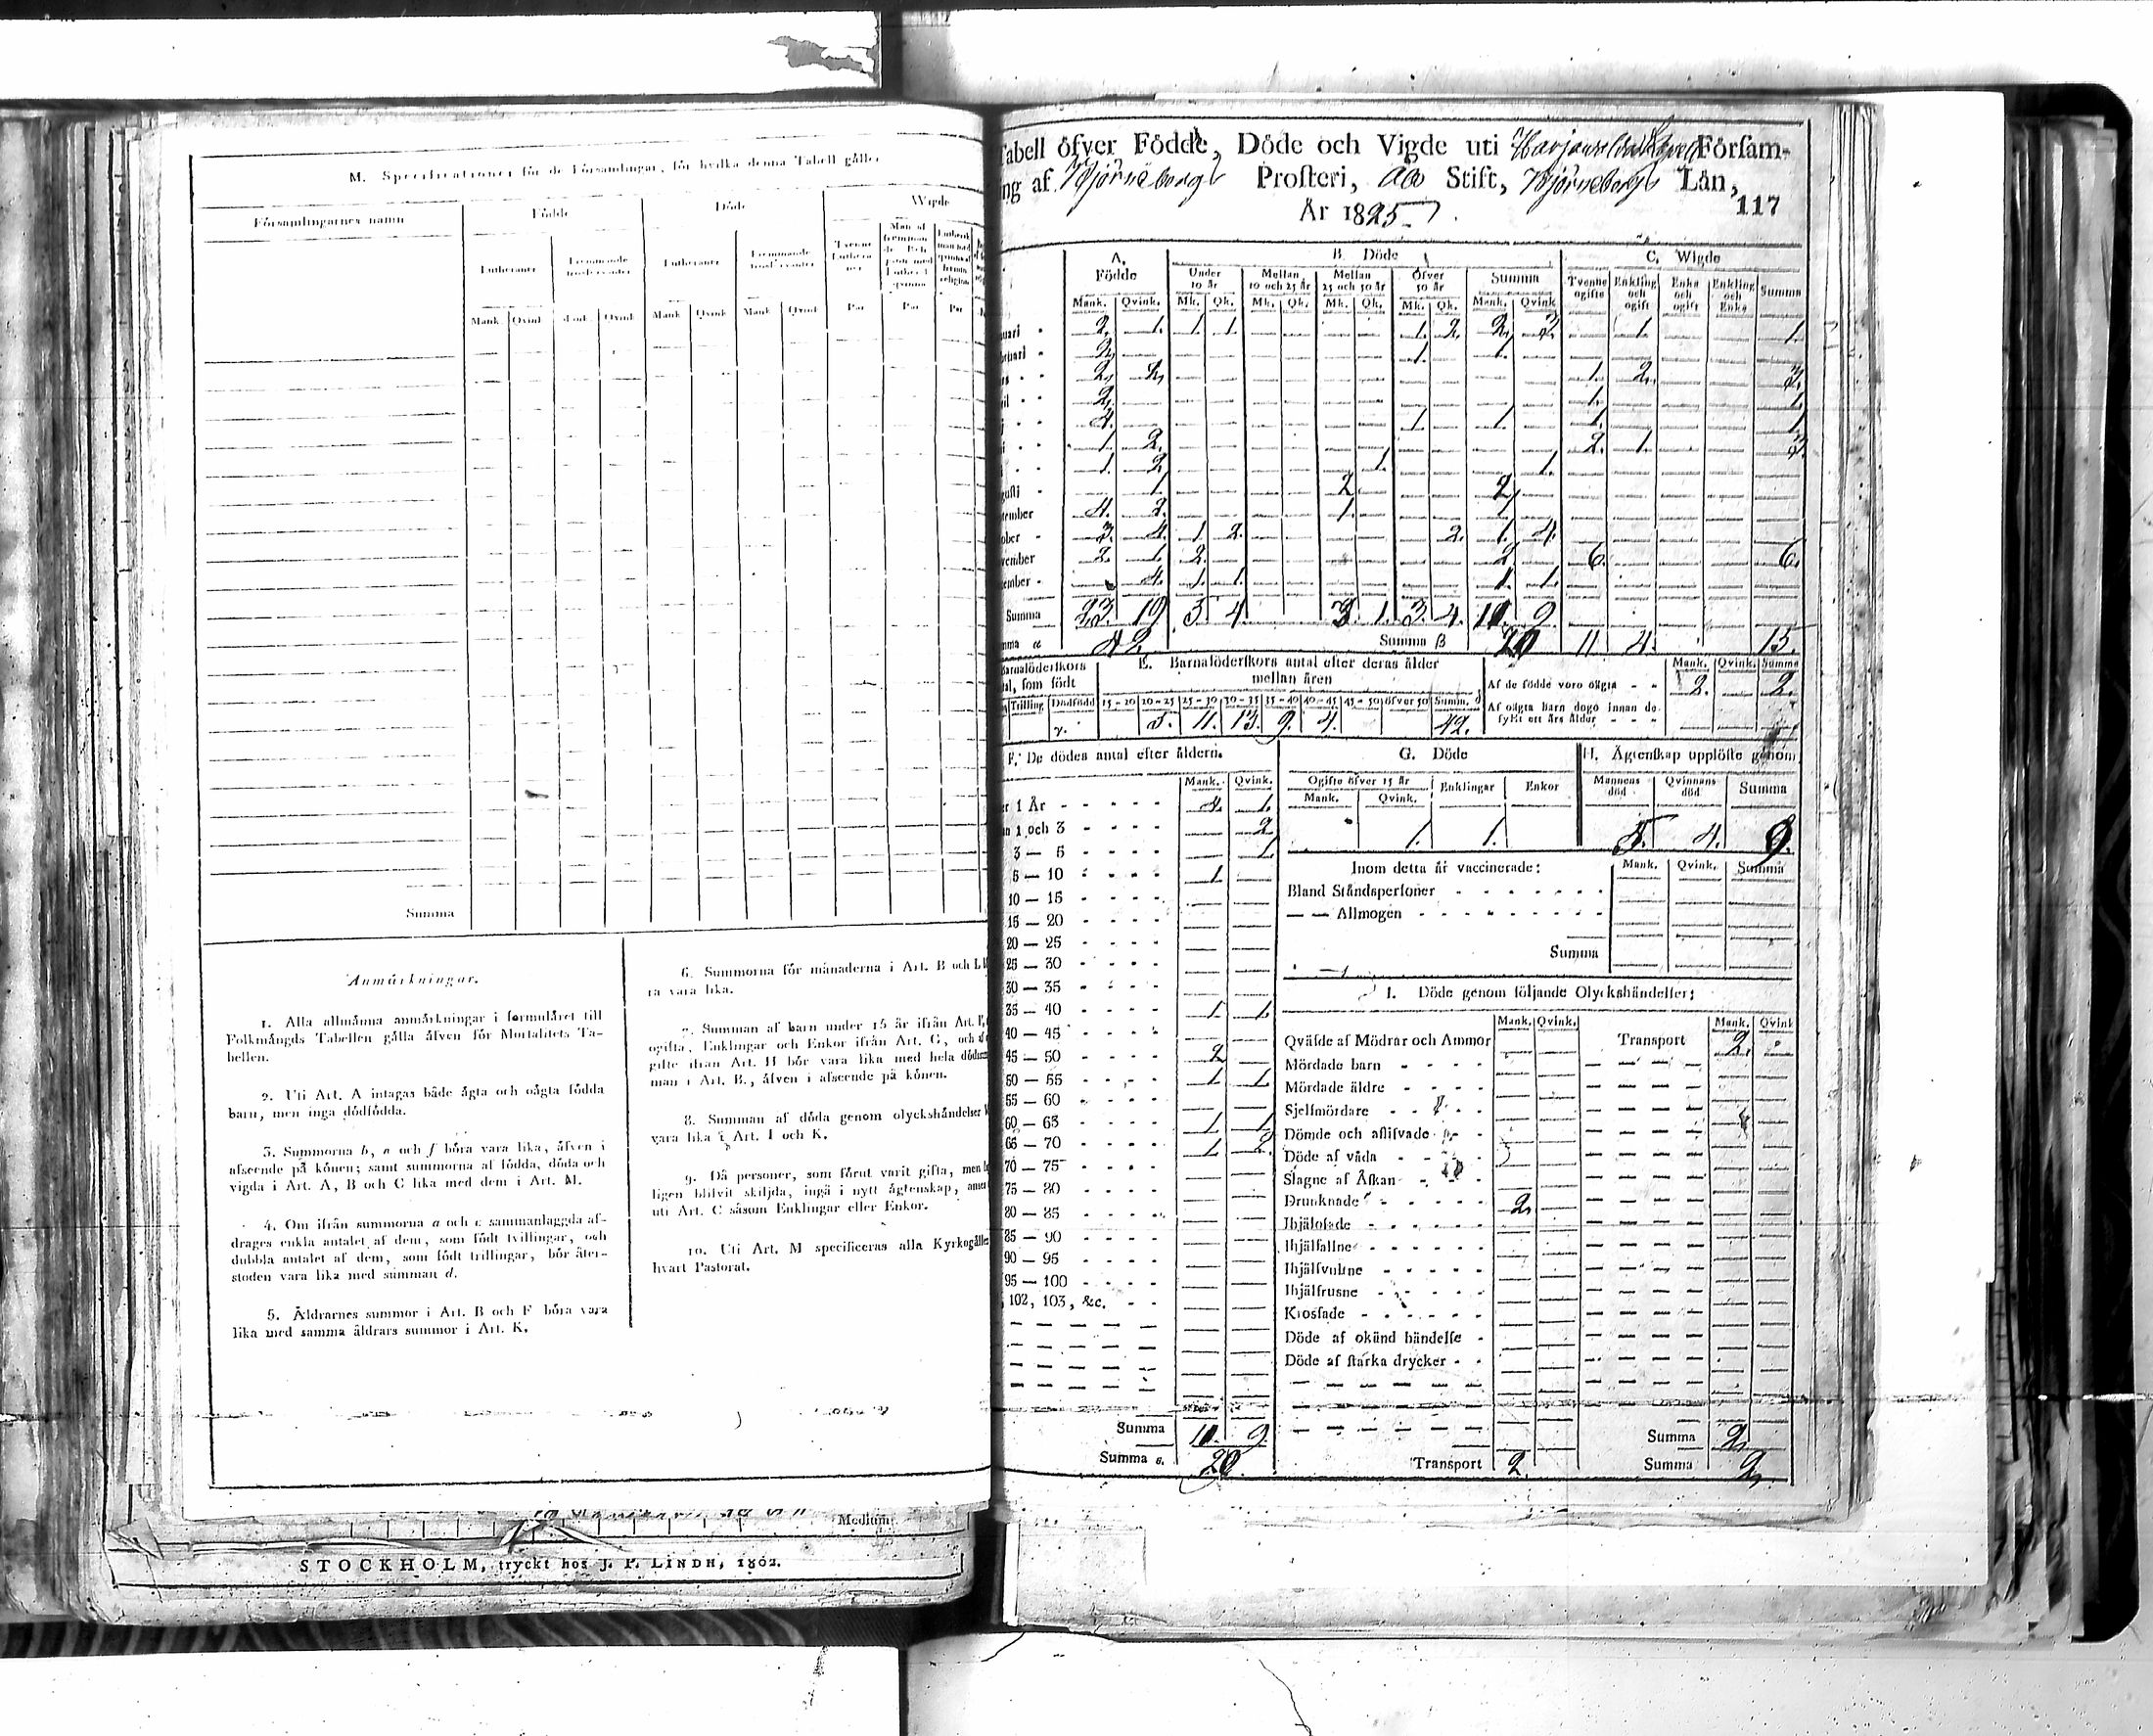 M. Specificationer för de Församlingar, för hvilka denna Tabell gäller
Församlingarnes namn
Födde
Döde
Wigde
Lutheraner
Lutheraner
Mank Qvink Mank Qvink Mank Qvink Mank Qvink Par Par Par
Summa
Anmärkningar.
1. Alla allmänna anmärkningar i formuläret till
Folkmängds Tabellen gälla äfven för Mortalitets Ta-
bellen.
2. Uti Art. A intagas både ägta och oägta födda
barn, men inga dödfödda.
3. Summorna b, e och f böra vara lika, äfven i
afseende på könen; samt summorna af födda, döda och
vigda i Art. A, B och C lika med dem i Art. M.
4. Om ifrån summorna a och c sammanlaggda af-
drages enkla antalet af dem, som födt tvillingar, och
dubbla antalet af dem, som födt trillingar, bör åter-
stoden vara lika med summan d.
5. Åldrarnes summor i Art. B och F böra vara
lika med samma åldrars summor i Art. K.
6. Summorna för månaderna i Art. B och L
ra vara lika.
7. Summan af barn under 15 år ifrån Art. F,
ogifta, Enklingar och Enkor ifrån Art. G, och
gifte ifrån Art. H bör vara lika med hela
man i Art. B., äfven i afseende på könen.
8. Summan af döda genom olyckshändelser
vara lika i Art. I och K.
9. Då personer, som förut varit gifta, men
ligen blifvit skiljda, ingå i nytt ägtenskap,
uti Art. C såsom Enklingar eller Enkor.
10. Uti Art. M specificeras alla
hvart Pastorat.
Medium
STOCKHOLM, tryckt hos J. P. LINDH, 1802.
Tabell öfver Födde, Döde och Vigde uti Församling
af Björneborgs Prosteri, Åbo Stift, Björneborgs Län,
År 1825.
117
A. Födde
B. Döde
C. Wigde
Under 10 år
Mellan 10 och 25 år
Mellan 25 och 50 år
Öfver 50 år
Summa
Tvenne ogifte
Enkling och ogift
Enka och ogift
Enkling och Enka
Summa
Mank. Qvink. Mk. Qk. Mk. Qk. Mk. Qk. Mk. Qk. Mank. Qvink
2. 1. 1. 1. 1. 2. 2. 3. 1. 1.
2. 1. 1.
2. 2. 1. 2. 3.
2. 1. 1.
4. 1 1. 1. 1
1. 2. 2. 1. 3.
1. 2. 1. 1.
1 2 2
tember 4. 2. 1. 1
ober 3. 4. 1. 2. 2. 1. 4.
vember 2. 1. 2. 2 6. 6.
ember 4. 1. 1. 1. 1.
Summa 23. 19 5. 4. 3. 1. 3. 4. 11. 9.
42. Summa ß 20 11 4. 15.
Barnaföderskors
som födt
Trilling Dödfödd
E. Barnaföderskors antal efter deras ålder
mellan åren
15-20 20-25 25-30 30-35 35-40 40-45 45-50 öfver 50 Summ. d
5. 11. 13. 9. 4. 42.
Mank. Qvink. Summa
Af de födde voro oägta 2. 2.
Af oägta barn dogo innan de
fyllt ett års ålder
F. De dödes antal efter åldern.
Mank. Qvink.
1 År 4. 1.
1 och 3 2
3 — 5 1.
5 — 10 1
10 — 15
15 — 20
20 — 25
25 — 30
30 — 35
35 — 40 1 1.
40 — 45
45 — 50 2
50 — 55 1 1.
55 — 60
60 — 65 1 1
65 — 70 1 2.
70 — 75
75 — 80
80 — 85
85 — 90
90 — 95
95 — 100
102, 103, &c.
Summa 9.
Summa e. 20.
G. Döde
Ogifte öfver 15 år
Mank. Qvink. Enklingar Enkor
1. 1.
H. Ägtenskap upplöste genom
Mannens död Qvinnans död Summa
5. 4. 9.
Inom detta år vaccinerade: Mank. Qvink. Summa
Bland Ståndspersoner
— — Allmogen
Summa
I. Döde genom följande Olyckshändelser:
Mank. Qvink. Mank. Qvink
Qväfde af Mödrar och Ammor Transport 2.
Mördade barn
Mördade äldre
Sjelfmördare
Dömde och aflifvade
Döde af våda
Slagne af Åskan
Drunknade 2
Ihjälosade
Ihjälfallne
Ihjälfrusne
Krossade
Döde af okänd händelse
Döde af starka drycker
Summa 2
Transport 2. Summa 2